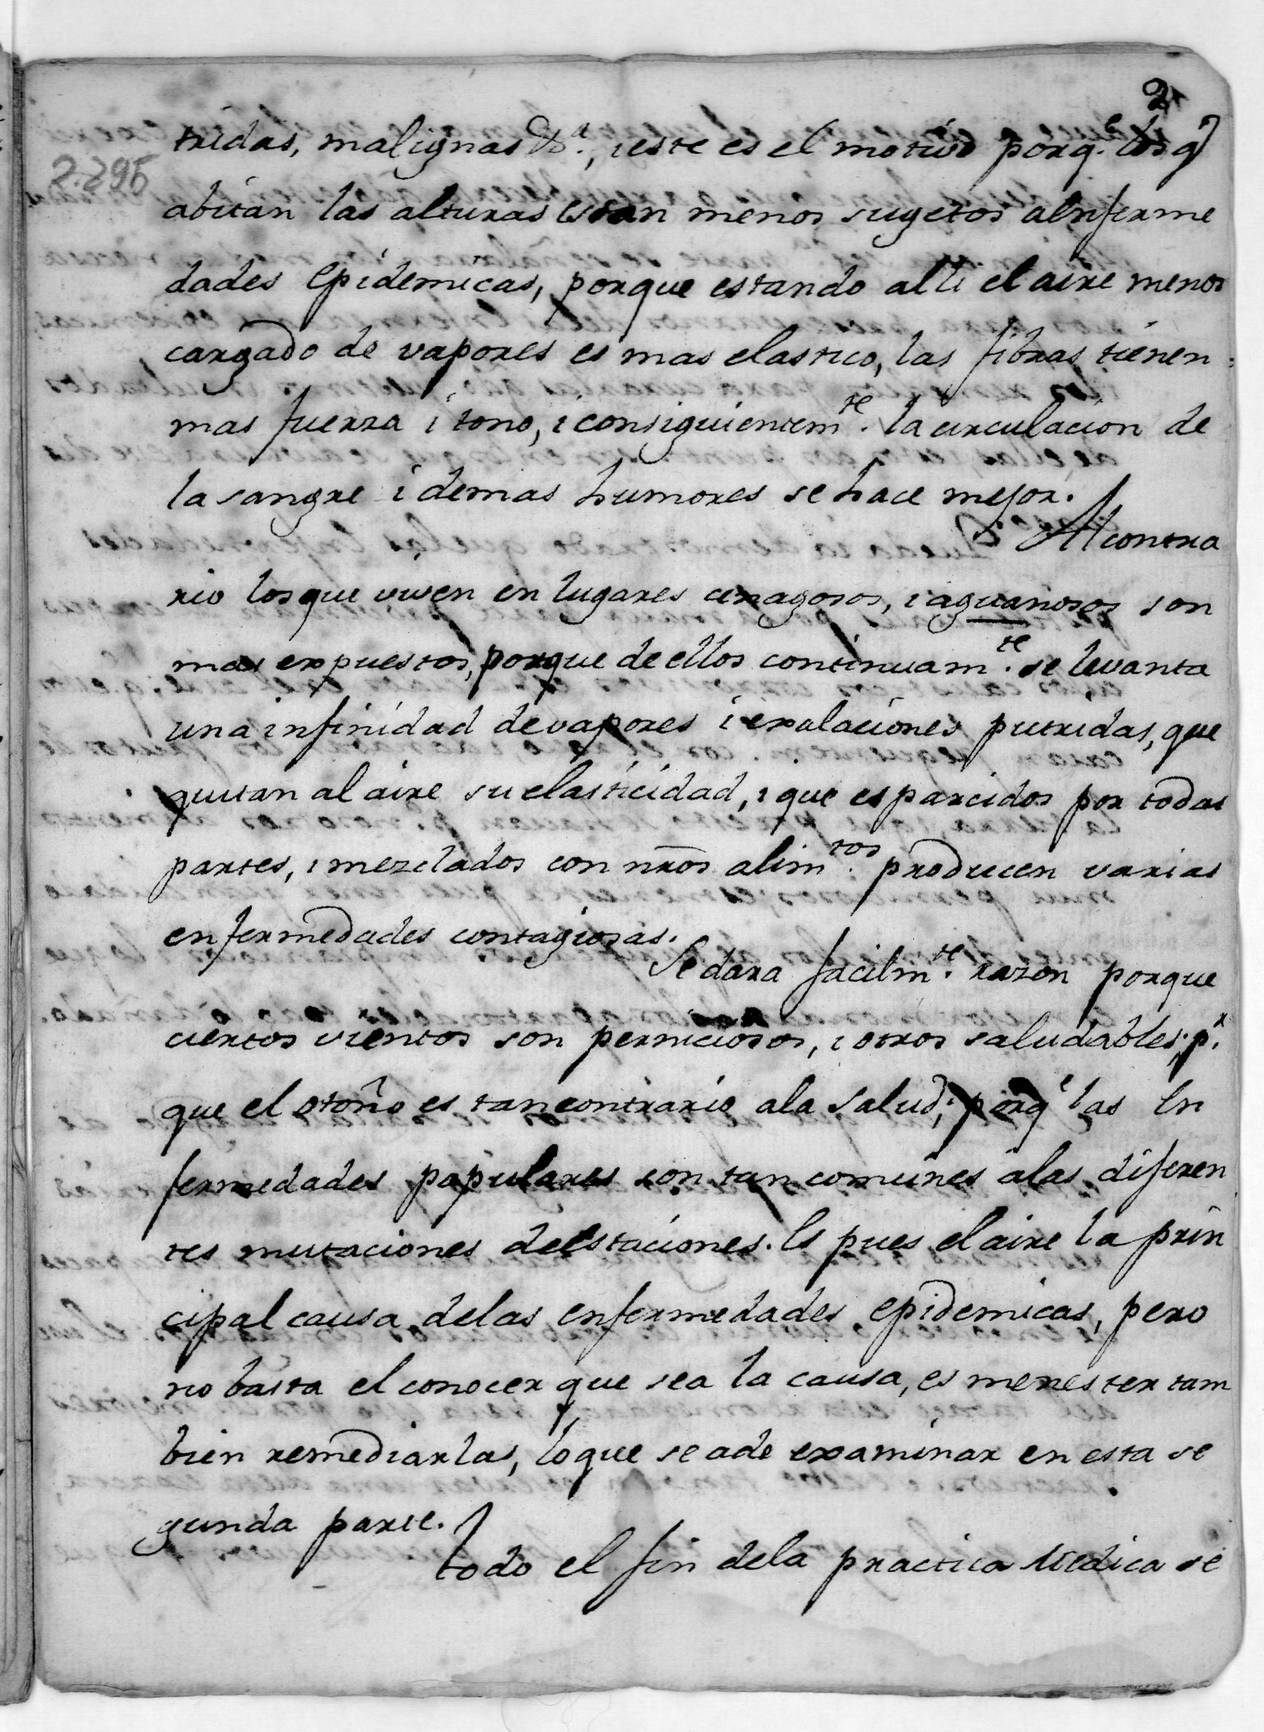 2
2.295
tridas, malignas &ª., i este es el motivo porq.e los q
abitan las alturas estan menos sugetos a enferme
dades epidemicas, porque estando alli el aire menos
cargado de vapores es mas elastico, las fibras tienen
mas fuerza i tono, i consiguientem.te la circulacion de
la sangre i demas humores se hace mejor.
Al contra
rio los que viven en lugares cenagosos, i aguanosos son
mas expuestos, porque de ellos continuam.te se levanta
una infinidad de vapores i exalaciones putridas, que
quitan al aire su elasticidad, i que esparcidos por todas
partes, i mezclados con nr̄os alim.tos producen varias
enfermedades contagiosas.
Se dara facilm.te razon porque
ciertos vientos son perniciosos, i otros saludables; p.r
que el otoño es tan contrario a la salud; porq.e las en
fermedades populares son tan comunes a las diferen
tes mutaciones de estaciones. Es pues el aire la prin
cipal causa de las enfermedades epidemicas, pero
no basta el conocer que sea la causa, es menester tam
bien remediarlas, lo que se a de examinar en esta se
gunda parte.
todo el fin de la practica Medica se